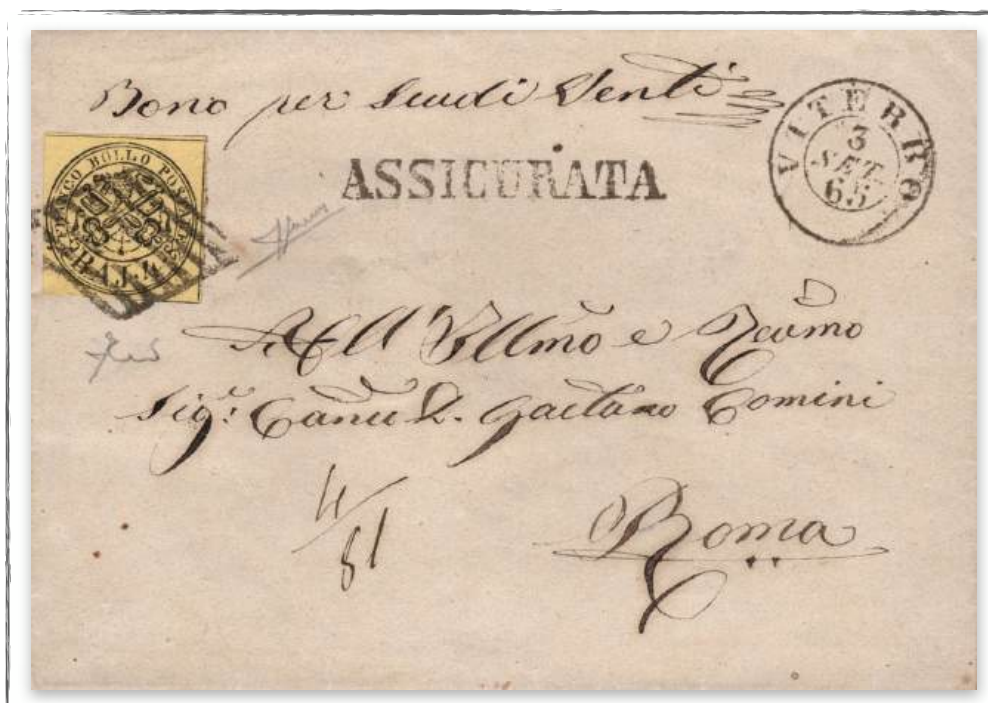 Bono per Scudi Venti
FRANCO BOLLO POSTALE
BAJ. 4
ASSICURATA
VITERBO
3
SET.
65
All' Illmo e Revmo
Sigr. Canco D. Gaetano Comini
4/81
Roma